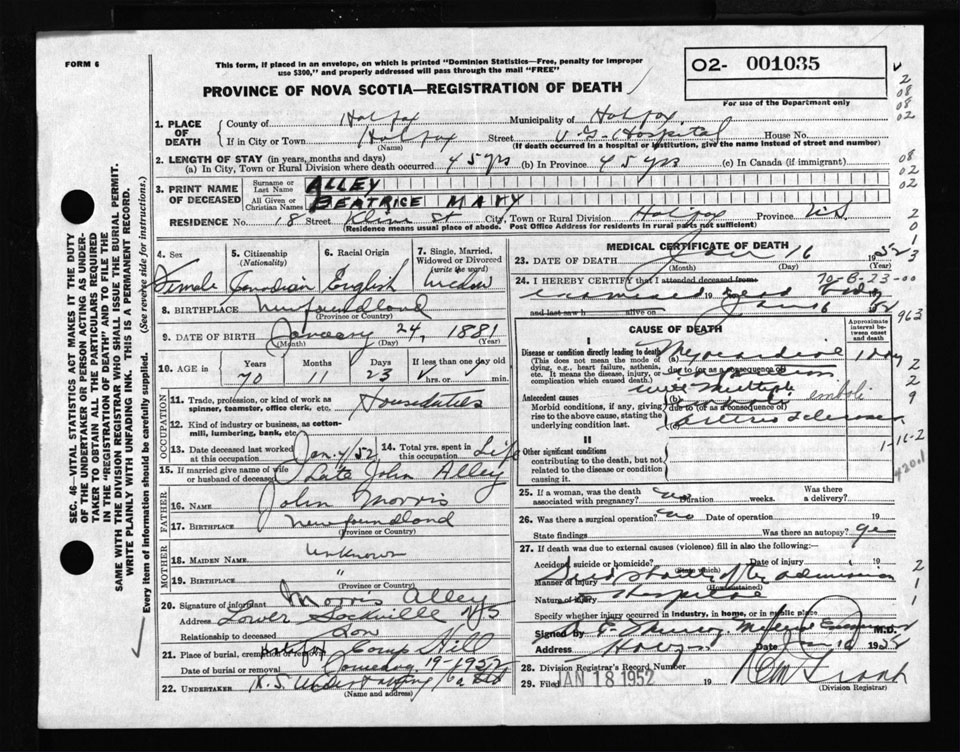 FORM 6
This form, if placed in an envelope, on which is printed "Dominion Statistics—Free, penalty for improper
use $300," and properly addressed will pass through the mail "FREE"
O2- 001035
For use of the Department only
PROVINCE OF NOVA SCOTIA—REGISTRATION OF DEATH
1. PLACE OF DEATH
County of Halifax Municipality of Halifax
If in City or Town Halifax Street V G Hospital House No.
(Name) (If death occurred in a hospital or institution, give the name instead of street and number)
2. LENGTH OF STAY (in years, months and days)
(a) In City, Town or Rural Division where death occurred 45 yrs (b) In Province 45 yrs (c) In Canada (if immigrant)
3. PRINT NAME OF DECEASED
Surname or Last Name ALLEY
All Given or Christian Names BEATRICE MARY
RESIDENCE No. 18 Street St City, Town or Rural Division Halifax Province N.S.
(Residence means usual place of abode. Post Office Address for residents in rural parts not sufficient)
4. Sex Female
5. Citizenship (Nationality) Canadian
6. Racial Origin English
7. Single, Married, Widowed or Divorced (write the word) Widow
8. BIRTHPLACE Newfoundland
(Province or Country)
9. DATE OF BIRTH January 24, 1881
(Month) (Day) (Year)
10. AGE in Years Months Days If less than one day old
70 11 23 hrs. or min.
OCCUPATION
11. Trade, profession, or kind of work as spinner, teamster, office clerk, etc. Houseduties
12. Kind of industry or business, as cotton-mill, lumbering, bank, etc.
13. Date deceased last worked at this occupation Jan. 4/52
14. Total yrs. spent in this occupation Life
15. If married give name of wife or husband of deceased Late John Alley
FATHER
16. NAME John Morris
17. BIRTHPLACE Newfoundland
(Province or Country)
MOTHER
18. MAIDEN NAME unknown
19. BIRTHPLACE "
(Province or Country)
20. Signature of informant Morris Alley
Address Lower Sackville N S
Relationship to deceased Son
21. Place of burial, cremation or removal Halifax Camp Hill
Date of burial or removal January 19 - 1952
22. UNDERTAKER N. S. Undertaking Co Ltd
(Name and address)
MEDICAL CERTIFICATE OF DEATH
23. DATE OF DEATH Jan 16 1952
(Month) (Day) (Year)
24. I HEREBY CERTIFY that I attended deceased from 70-B-23-00
examined 19 dead body
and last saw h alive on Jan 16 52
963
CAUSE OF DEATH
Approximate interval between onset and death
I
Disease or condition directly leading to death Myocardial 1 day
(This does not mean the mode of dying, e.g., heart failure, asthenia, etc. It means the disease, injury, or complication which caused death.)
due to (or as a consequence of)
Antecedent causes
(b) with multiple emboli
Morbid conditions, if any, giving rise to the above cause, stating the underlying condition last.
due to (or as a consequence of)
(c)
II
Other significant conditions
contributing to the death, but not related to the disease or condition causing it.
1-16-2
420.1
25. If a woman, was the death associated with pregnancy? no Duration weeks. Was there a delivery?
26. Was there a surgical operation? no Date of operation 19
State findings Was there an autopsy? yes
27. If death was due to external causes (violence) fill in also the following:—
Accident, suicide or homicide? Date of injury 19
(State which)
Manner of injury Died shortly after admission
Nature of injury to Hospital
Specify whether injury occurred in industry, in home, or in public place
Signed by Medical Examiner M.D.
Address Halifax Date Jan 16 1952
28. Division Registrar's Record Number
29. Filed JAN 18 1952 19
(Division Registrar)
SEC. 46—VITAL STATISTICS ACT MAKES IT THE DUTY
OF THE UNDERTAKER OR PERSON ACTING AS UNDER-
TAKER TO OBTAIN ALL THE PARTICULARS REQUIRED
IN THE "REGISTRATION OF DEATH" AND TO FILE THE
SAME WITH THE DIVISION REGISTRAR WHO SHALL ISSUE THE BURIAL PERMIT.
WRITE PLAINLY WITH UNFADING INK. THIS IS A PERMANENT RECORD.
Every item of information should be carefully supplied. (See reverse side for instructions.)
2
08
08
02
08
02
02
2
0
1
3
2
2
9
2
1
1